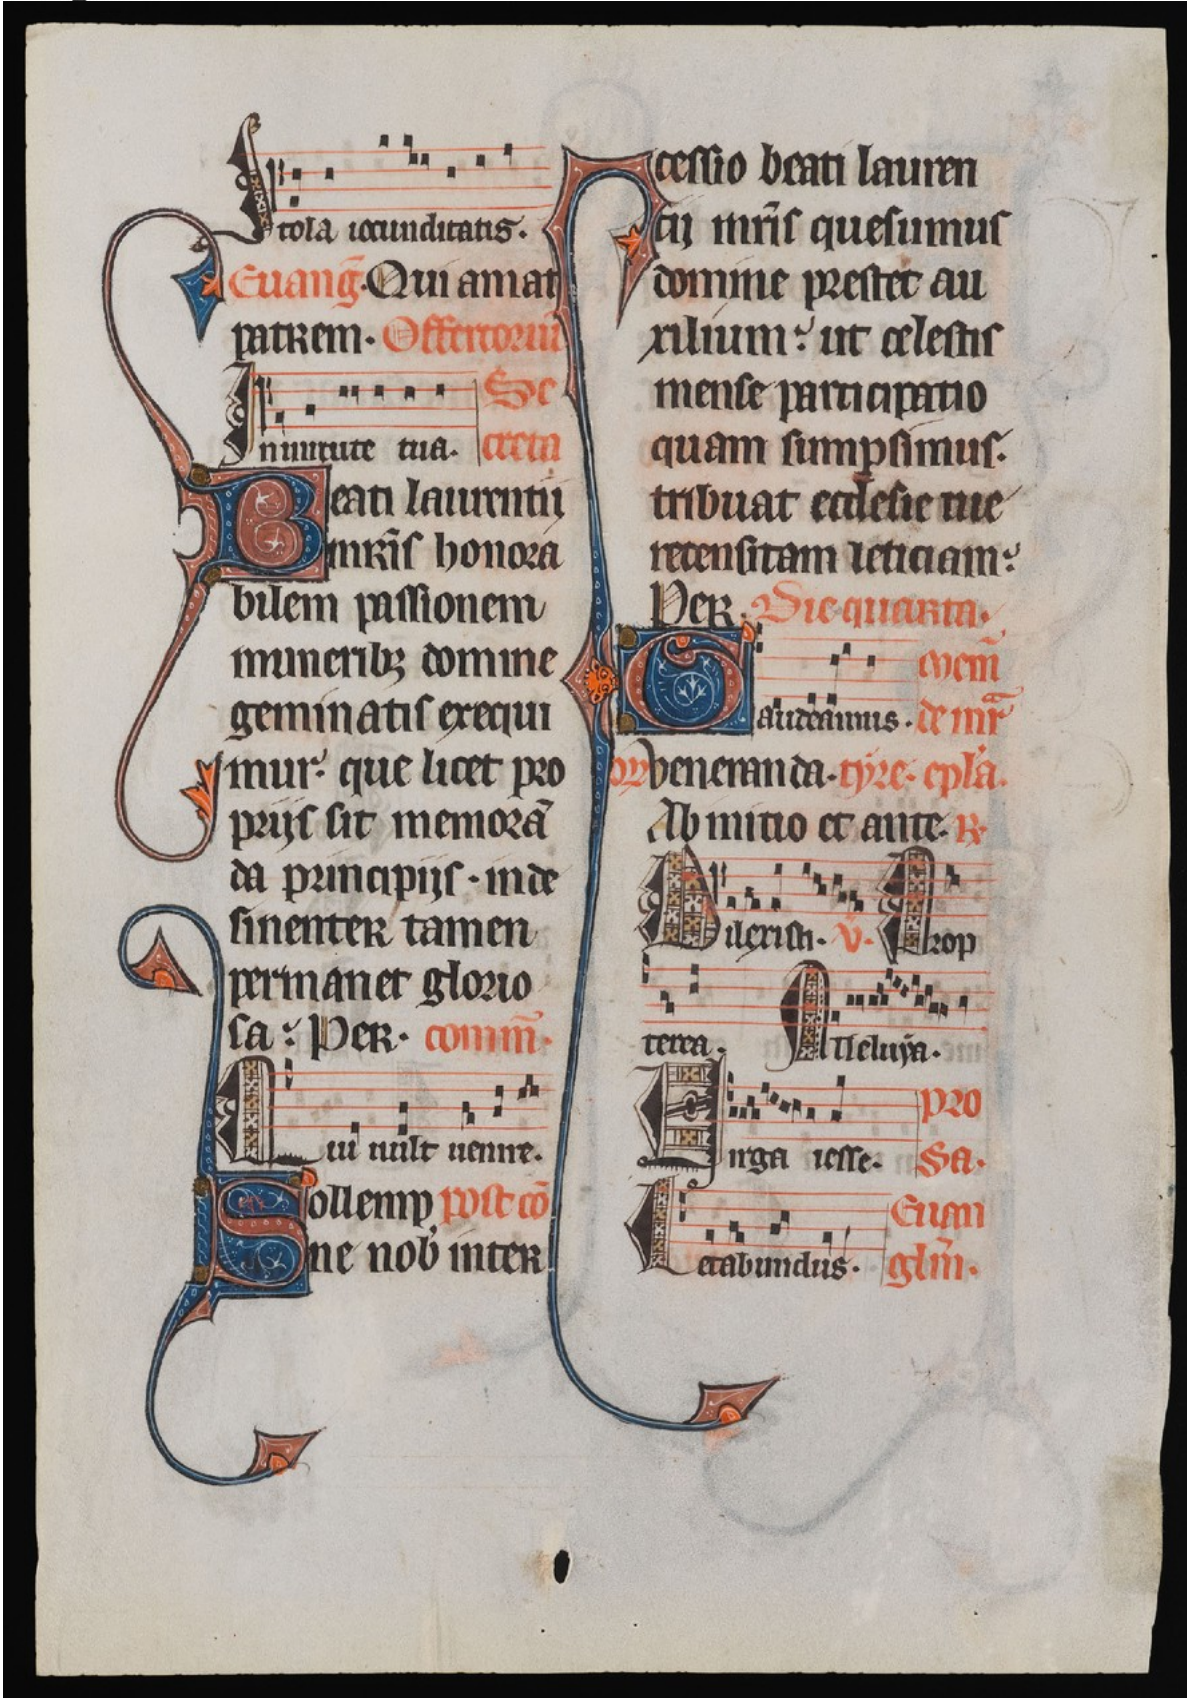 Stola iocunditatis.
Euang̅. Qui amat
patrem. Offertoriū
In uirtute tua. Se
creta
Beati laurentij
mr̅is honora
bilem passionem
muneribꝫ domine
geminatis exequi
mur: que licet pro
prijs sit memorā
da principijs. inde
sinenter tamen
permanet glorio
sa: Per. comm̅.
Qui uult uenire.
Sollemp post cō
ne nob̅ inter
cessio beati lauren
tij mr̅is quesumus
domine prestet au
xilium: ut celestis
mense participatio
quam sumpsimus.
tribuat ecclesie tue
recensitam leticiam:
Per. Die quarta.
Gaudeamus. de mr̅
ueneranda. epl̅a.
Ab initio et ante. R.
Dilexisti. V̅. Prop
terea. Alleluya.
Uirga iesse. pro
sa.
Letabundus. Euan
gl̅m.